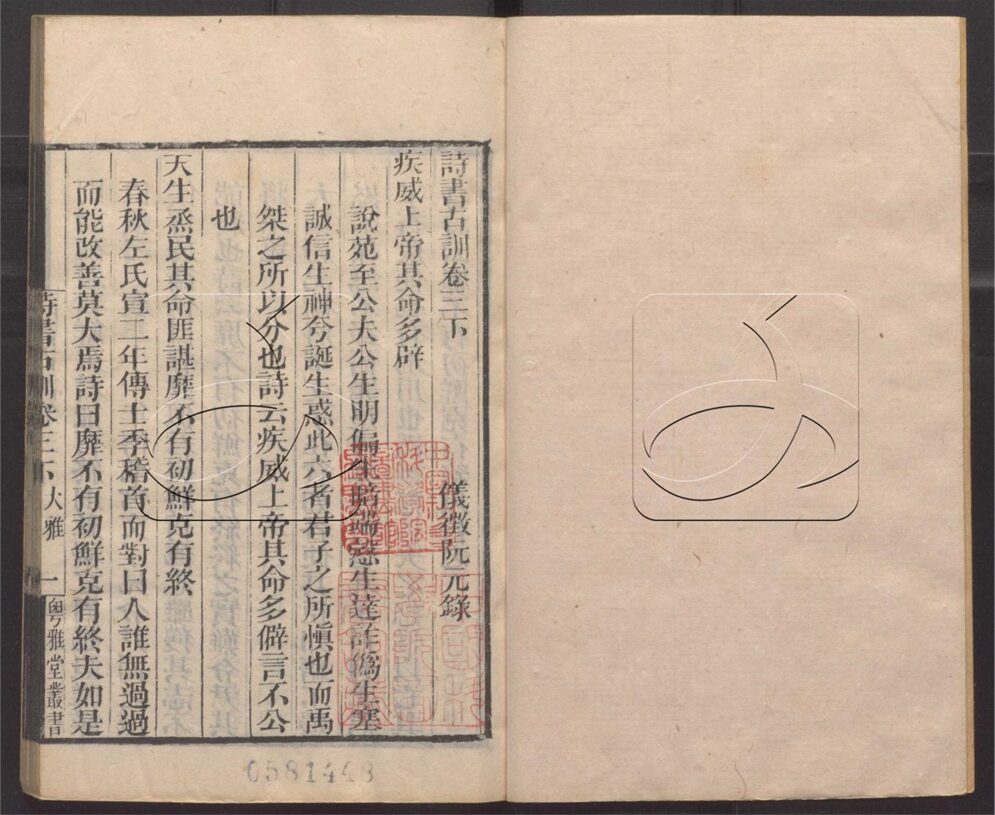 詩書古訓卷三下
儀徵阮元錄
疾威上帝其命多辟
說苑至公夫公生明偏生暗端愨生達詐僞生塞
誠信生神夸誕生惑此六者君子之所愼也而禹
桀之所以分也詩云疾威上帝其命多僻言不公
也
天生烝民其命匪諶靡不有初鮮克有終
春秋左氏宣二年傳士季稽首而對曰人誰無過過
而能改善莫大焉詩曰靡不有初鮮克有終夫如是
詩書古訓卷三下 大雅 一 粵雅堂叢書
0581448